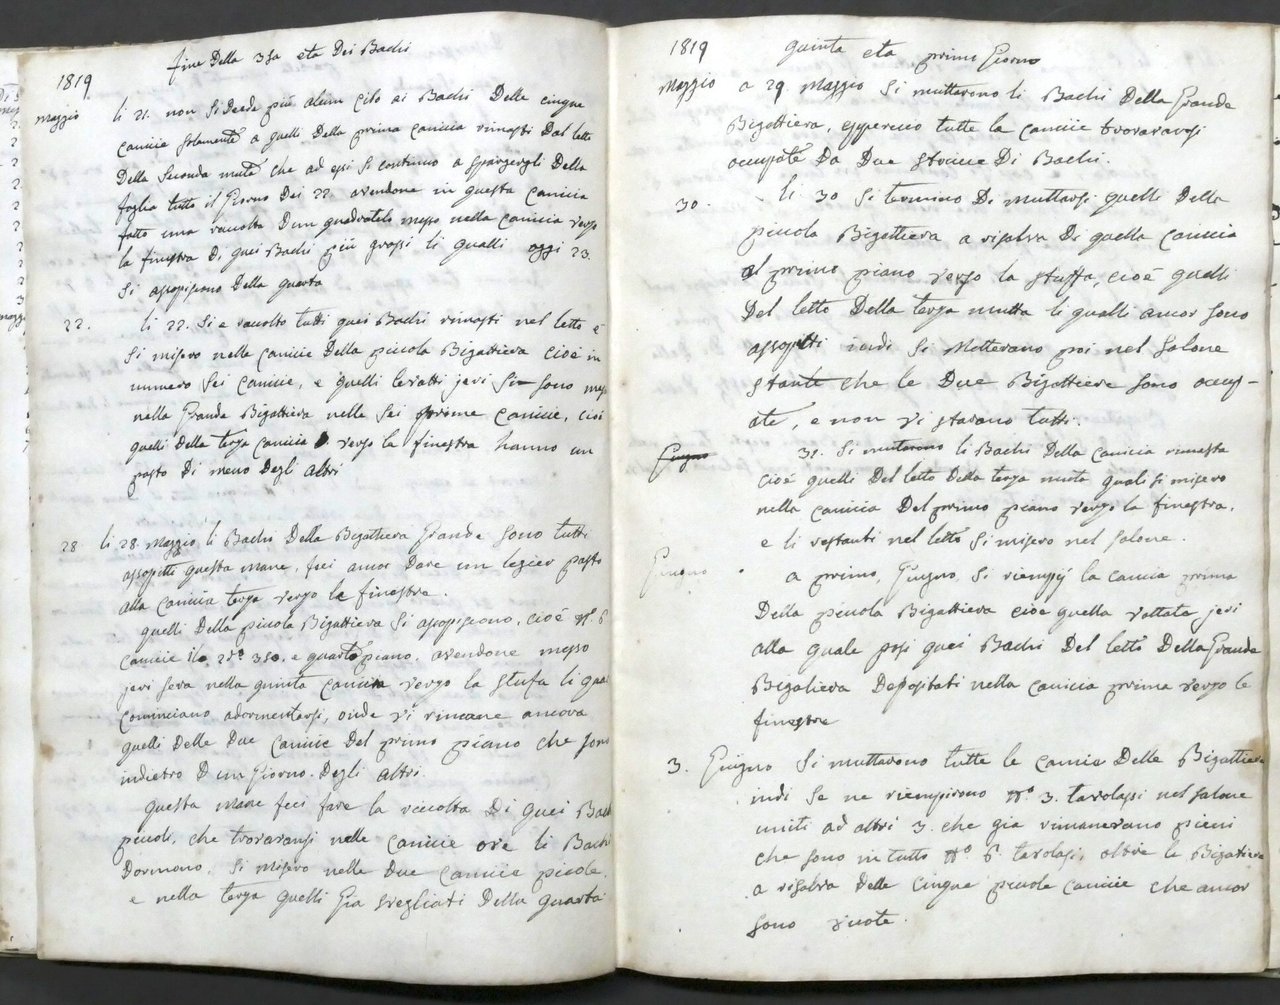 fine Della 3za eta Dei Bachi
1819
Maggio
li 21. non si deede più alcun cibo ai Bachi Delle cinque
Camicie solamente a quelli Della prima camicia rimasti Dal letto
Della Seconda muta che ad essi si continuo a spargergli Della
foglia tutto il Giorno Dei 22. avendone in questa Camicia
fatto una raccolta D'un quadratelo messo nella Camicia verso
la finestra Di quei Bachi più grossi li qualli oggi 23.
Si assopiscono Della quarta
22.
li 22. Si e racolto tutti quei Bachi rimasti nel letto e
Si misero nelle Camicie Della piccola Bigattiera cioè in
numero Sei Camicie, e quelli levatti jeri sono mes
nella Grande Bigattiera nelle Sei prime Camicie, cioè
quelli Della terza Camicia verso la finestra hanno un
pasto Di meno Degl'altri
28
li 28. Maggio li Bachi Della Bigattiera Grande Sono tutti
assopitti questa mane, feci ancor Dare un legier pasto
alla Camicia terza verso le finestre.
quelli Della piccola Bigattiera Si assopiscono, cioè N.° 6
Camicie 1.mo 2.do 3.zo e quarto piano, avendone messo
jeri Sera nella quinta Camicia verso la Stufa li qua
Cominciano adormentarsi, onde vi rimane ancora
quelli Delle Due Camicie Del primo piano che Sono
indietro D'un Giorno Degli altri.
questa mane feci fare la racolta Di quei Bachi
piccoli, che trovavansi nelle Camicie ove li Bachi
Dormono, Si misero nelle Due Camicie picole,
e nella terza quelli Gia svegliati Della quarta
1819
quinta eta primo Giorno
Maggio
a 29. Maggio Si muttarono li Bachi Della Grande
Bigattiera, epperciò tutte la camicie trovavansi
occupate Da Due Stracie Di Bachi.
30.
li 30 Si termino Di muttarsi quelli Della
piccola Bigattiera a risalva Di quella Camicia
al primo piano verso la stuffa, cioè quelli
Del letto Della terza mutta li qualli ancor Sono
assopitti indi Si Metterano poi nel Salone
stante che le Due Bigattiere Sono occup-
ate, e non vi stavano tutti.
Giugno
31. Si mutarono li Bachi Della Camicia rimasta
cioè quelli Del letto Della terza muta quali Si misero
nella Camicia Del primo piano verso la finestra,
e li restanti nel letto Si misero nel Salone.
Giugno
a primo, Giugno, Si riempij la Camicia prima
Della piccola Bigattiera cioe quella voltata jeri
alla quale posi quei Bachi Del letto Della Grande
Bigatiera Depositati nella Camicia prima verso le
finestre
3. Giugno Si muttarono tutte le Camicie Delle Bigattiere
indi Se ne riempirono N.° 3. tavolassi nel Salone
uniti ad altri 3. che gia rimanevano pieni
che Sono in tutto N.° 6 tavolassi, oltre le Bigattiere
a risalva Delle Cinque piccole Camicie che ancor
Sono vuote.